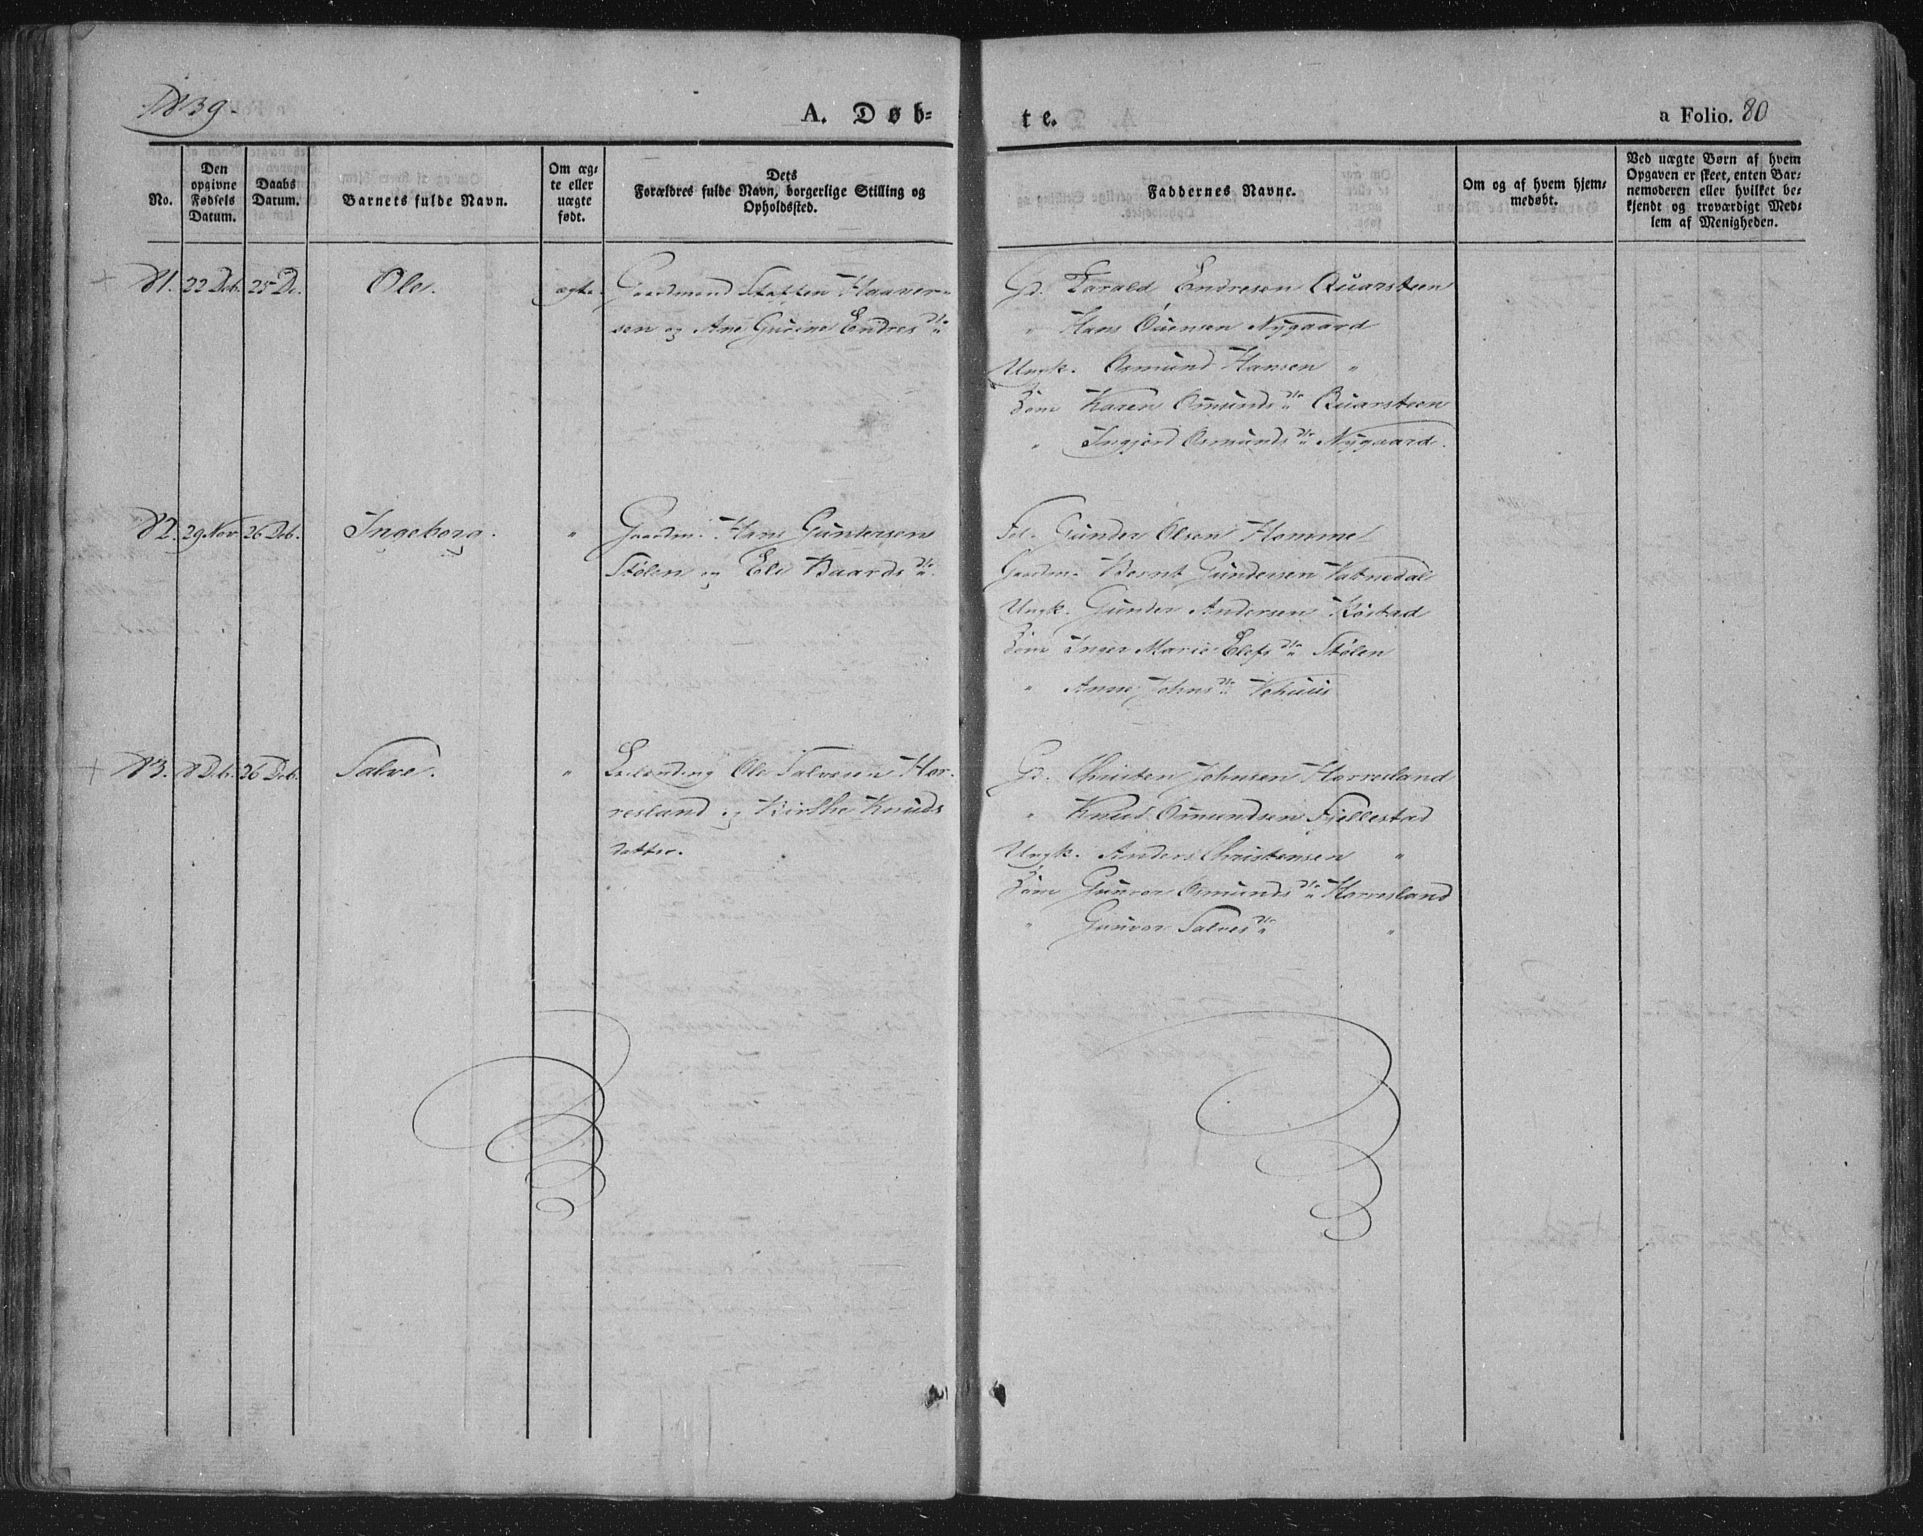 1839.
A. Døb-
te.
a Folio. 80
No.
Den opgivne Fødsels Datum.
Daabs Datum.
Barnets fulde Navn.
Om ægte eller uægte født.
Dets Forældres fulde Navn, borgerlige Stilling og Opholdssted.
Faddernes Navne.
Om og af hvem hjemmedøbt.
Ved uægte Børn af hvem Opgaven er skeet, enten Barnemoderen eller hvilket bekjendt og troværdigt Medlem af Menigheden.
81. 22 Deb. 25 D. Ole. ægte.
Gaardmand Staffen Haaver-
sen og Ane Gurine Endresdtr
Gd. Tarald Endresen Quarsteen
" Hans Ouensen Nygaard
Ungk. Osmund Hansen "
Pige Karen Osmundsdtr Quarsteen
" Ingjerd Osmundsdtr Nygaard.
82. 29 Nov. 26 Deb. Ingeborg. "
Gaardm. Hans Gundersen
Stølen og Eli Baardsdtr.
Gunder Olsen Homme
Gaardm. Bernt Gundersen Vatnedal
Ungk. Gunder Andersen Røstad
Inger Marie Elefsdtr Stølen
" Anne Johnsdtr Vehuus
83. 8 Deb. 26 Deb. Salve. "
Leilending Ole Salvesen Hor-
resland og Birthe Knuds
datter.
Gd. Christen Johnsen Horresland
" Knud Osmundsen Fjellestad
Ungk. Anders Christensen "
Gunvor Osmundsdtr Horresland
" Gunvor Salvesdtr "